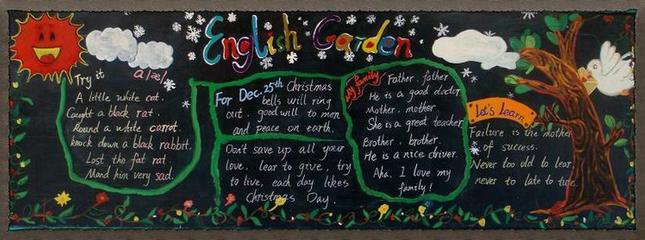 English Garden
Try it a/æ/
A little white cat.
Caught a black rat.
Round a white carrot.
knock down a black rabbit.
Lost the fat rat,
Mand him very sad.
For Dec. 25th Christmas
bells will ring
out, good will to men
and peace on earth.
Don't save up all your
love, lear to give, try
to live, each day likes
Christmas Day.
My family
Father, father
He is a good doctor
Mother, mother
She is a great teacher
Brother, brother.
He is a nice driver.
Aha, I love my
family!
Let's Learn
Failure is the mother
of success.
Never too old to lear
never to late to ture.